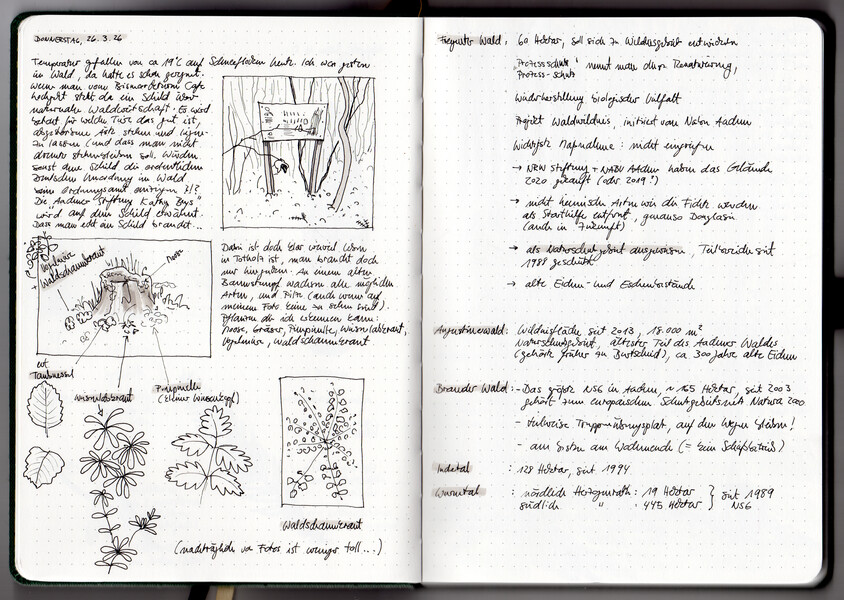 DONNERSTAG, 26.3.26
Temperatur gefallen von ca 19°C auf Schneeflocken heute. Ich war gestern
im Wald, da hatte es schon geregnet.
Wenn man vom Bismarckturm Café
steht da ein Schild über
naturnahe Waldwirtschaft. Es wird
erklärt für welche Tiere das gut ist,
abgestorbene Äste stehen und liegen
zu lassen (und dass man nicht
darunter stehenbleiben soll. Würden
sonst ohne Schild die ordentlichen
Deutschen Unordnung im Wald
beim Ordnungsamt anzeigen?!?
Die "Aachener Stiftung Kathy Beys"
wird auf dem Schild erwähnt.
Dass man echt ein Schild braucht...
Vogelmiere
Waldschaumkraut
Moos
Dabei ist doch klar wieviel Leben
in Totholz ist, man braucht doch
nur hingucken. An einem alten
Baumstumpf wachsen alle möglichen
Arten, und Pilze (auch wenn auf
meinem Foto keine zu sehen sind).
Pflanzen die ich erkennen kann:
Moose, Gräser, Pimpinelle, Wiesenlabkraut,
Vogelmiere, Waldschaumkraut
evt
Taubnessel
Wiesenlabkraut
Pimpinelle
(kleiner Wiesenknopf)
Waldschaumkraut
(nachträglich von Fotos ist weniger toll...)
Freyenter Wald: 60 Hektar, soll sich zu Wildnisgebiet entwickeln
"Prozessschutz" nennt man diese Renaturierung,
Prozess-schutz
Wiederherstellung biologischer Vielfalt
Projekt Waldwildnis, initiiert von Nabu Aachen
Wichtigste Maßnahme: nicht eingreifen
→ NRW Stiftung + NABU Aachen haben das Gelände
2020 gekauft (oder 2019?)
→ nicht heimische Arten wie die Fichte werden
als Starthilfe entfernt, genauso Douglasien
(auch in "Zukunft")
→ als Naturschutzgebiet ausgewiesen, Teilbereiche seit
1988 geschützt
→ alte Eichen- und Eschenbestände
Augustinerwald: Wildnisfläche seit 2013, 18.000 m²
Naturschutzgebiet, ältester Teil des Aachener Waldes
(gehörte früher zu Burtscheid), ca 300 Jahre alte Eichen
Brander Wald: - Das größte NSG in Aachen, ~165 Hektar, seit 2003
gehört zum europäischen Schutzgebietsnetz Natura 2000
- teilweise Truppenübungsplatz, auf den Wegen bleiben!
- am besten am Wochenende (= kein Schießbetrieb)
Indetal : 128 Hektar, seit 1994
Wurmtal : nördlich Herzogenrath: 19 Hektar } seit 1989
südlich " : 445 Hektar } NSG